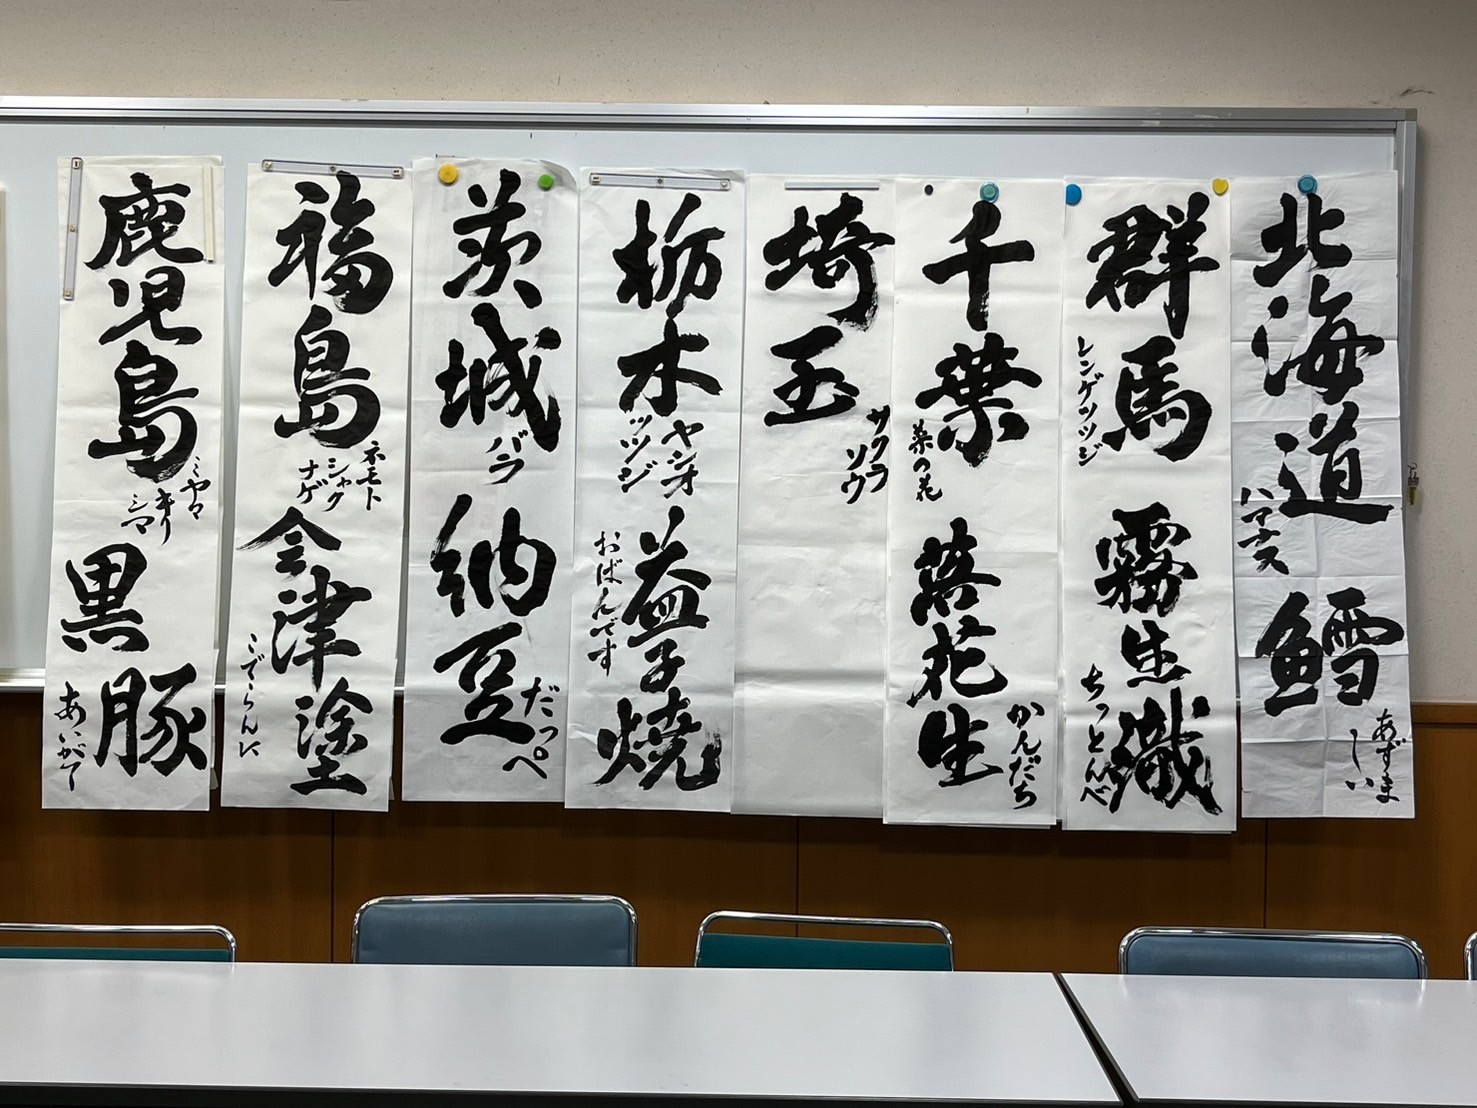 北海道
ハマナス
鱈
あずま
しい
群馬
レンゲツツジ
霧生織
ちっとんべ
千葉
菜の花
落花生
かんだち
埼玉
サクラ
ソウ
栃木
ヤシオ
ツツジ
益子焼
おばんです
茨城
バラ
納豆
だっぺ
福島
ネモト
シャク
ナゲ
会津塗
こでらんに
鹿児島
ミヤマ
キリ
シマ
黒豚
あいがて